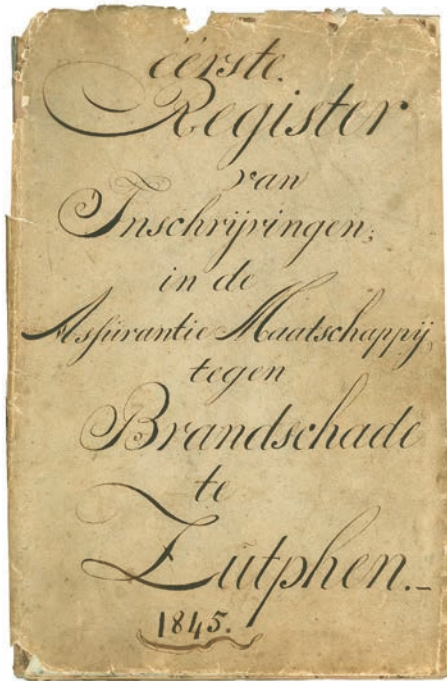 éérste.
Register
van
Inschrijvingen;
in de
Assurantie Maatschappij,
tegen
Brandschade
te
Zutphen.-
1845.